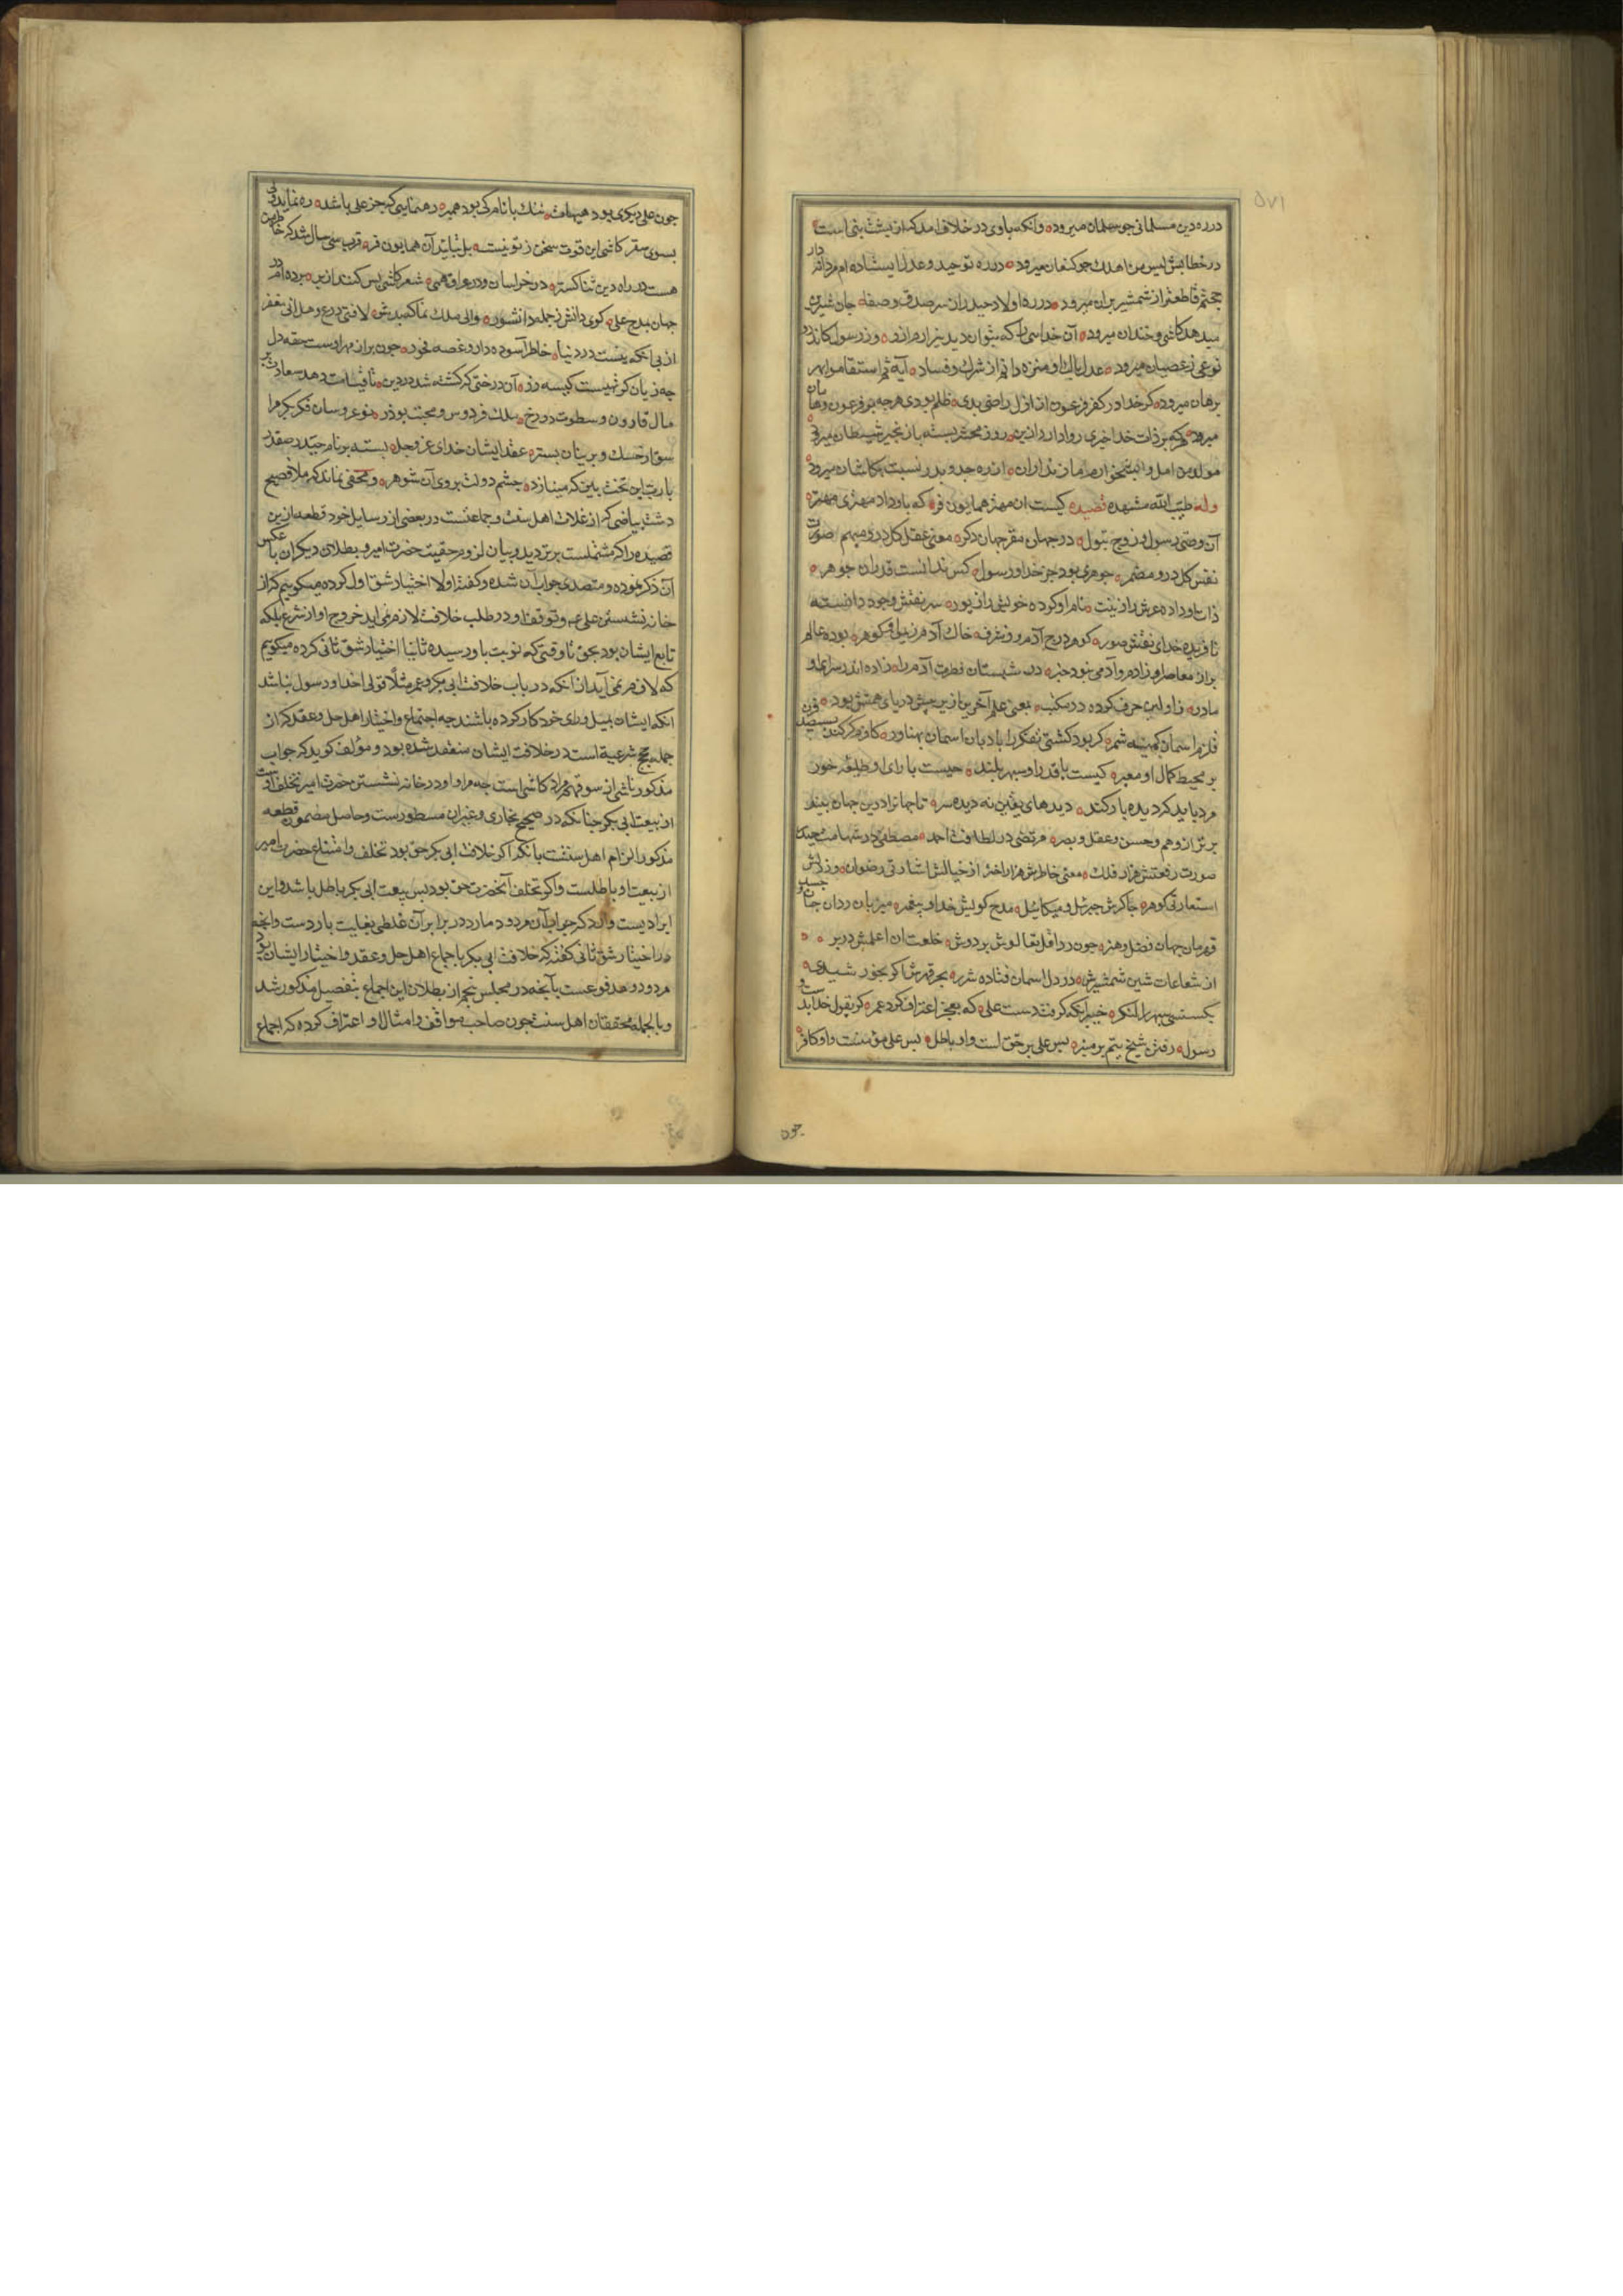 ۵۷۱
در ره دین مسلمانی جو سلمان میرود وانکه باوی در خلاف امد که از پشت بنی است
در خطابش لیس من اهلك جو کنعان میرود در ره توحید وعدل ایستاده ام مردانه دار
حجتم قاطعتر از شمشیر بران میرود در ره اولاد حیدر از سر صدق وصفا جان شیرین
میدهد کاشی وخندان میرود آن خدایی را که بتوان دید بیزارم ازو وز رسول کاندرو
نوعی ز عصیان میرود عدل پاك او منزه دانم از شرك وفساد آیه ثم استقاموا بر
برهان میرود کر خدا در کفر فرعون از ازل راضی بدی ظلم بودی هرجه بر فرعون وهامان
میرود هرکه بر ذات خدا جبری روا دارد ازین روز محشر بسته با زنجیر شیطان میرود
مولد من امل و ابشخوارم مازندران از ره جد و پدر نسبت بکاشان میرود
وله طیب الله مشهده قصیده کیست ان مهتر همایون فر که باو داد مهتری مهتر
آن وصی رسول وزوج بتول در جهان مقر جهان دکر معنی عقل کل درو مبهم صورت
نفس کل درو مضمر جوهری بود جز خدا ورسول کس ندانست قدر ان جوهر
ذات او داده عرش را زینت نام او کرده خویش را زیور سر نقش وجود دانسته
نافریده خدای نقش صور کوهر درج آدم و زشرف خاك آدم زنیل او کوهر بوده عالم
براز معاصر او زادم وآدمی نبود خبر در شبستان فطرت آدم را زاده اندر سرای او
مادر ز اولین حرف کوده در مکتب یعنی علم آخرین ازبر پیش دریای همتش بود
قلزم اسمان کمینه شمر کر بود کشتی تفکر را بادبان اسمان پهناور کاورم کرکند بسیصد قرن
بر محیط کمال او معبر کیست با قدر او سپهر بلند جیست با رای او طلیعه خور
مرد باید کردیده بارکند دیدهای یقین نه دیده سر تا جمال ترا درین جهان بیند
برتر از وهم وحس وعقل وبصر مرتضی در لطافت احمد مصطفی در شهامت حیدر
صورت رفعتش هزار فلك معنی خاطرش هزار اختر از خیالش اشارتی رضوان وز لبش
استعارتی کوهر جاکرش جبرئیل ومیکائیل مدح کویش خدا وپیغمبر میزبان ردان جان جسمی
قهرمان جهان فضل وهنر جون ردا قل تعالوش بر دوش خلعت ان اعلمش در بر
از شعاعات شین شمشیرش در دل اسمان فتاده شرر بحر قهرش اکر بخورشیدی
بکستی سپهر را لنکر خیبر انکه کرفت دست علی که بعجز اعتراف کرد عمر کر بقول خداست و
رسول رفتن شیخ تیم بر منبر پس علی بر حق است واو باطل پس علی مؤمنست واو کافر
جون
جون علی دیکری بود هیهات ننك با نام کی بود همبر رهنمایی که جز علی باشد ره نماید ولی
بسوی سقر کاشی این قوت سخن ز تو نیست بل بتایید آن همایون فر قرب سی سال شد که خاطر من
هست در راه دین ثناکستر در خراسان ودر عراق همی شعر کاشی بس کنند ازبر برده ام در
جهان بمدح علی کوی دانش ز جمله دانشور والی ملك نماکبدش لا فتی درع وهل اتی مغفر
از پی انکه نیست در دنیا خاطر آسوده دار وغصه مخور جون براز مهر اوست حقه دل
جه زیان کر تهیست کیسه زر آن درختی که کشته شد در دین تا قیامت دهد سعادت بر
مال قارون وسطوت دوزخ ملك فردوس ومحنت بوذر نوعروسان فکر بکر مرا
سوی ارخسك و برنیان بستر عقد ایشان خدای عز وجل بسته بر نام حیدر صفدر
یارب این تخت بین که مینازد جشم دولت بروی آن شوهر ومخفی نماند که ملا فصیح
دشت بیاضی که از غلات اهل سنت وجماعتست در بعضی از رسایل خود قطعه ازین
قصیده را که مشتملست بر تردید وبیان لزوم حقیت حضرت امیر وبطلان دیکران با عکس
آن ذکر نموده ومتصدی جواب آن شده وکفته اولا اختیار شق اول کرده میکوییم که از
خانه نشستن علی ع وتوقف او در طلب خلافت لازم نمی اید خروج او از شرع بلکه
تابع ایشان بود بحق تا وقتی که نوبت باو رسیده ثانیا اختیار شق ثانی کرده میکوییم
که لازم نمی آید از آنکه در باب خلافت ابی بکر وعمر مثلا قولی از خدا ورسول نباشد
انکه ایشان بمیل ورای خود کار کرده باشند جه اجتماع واختیار اهل حل وعقد که از
جمله حجج شرعیه است در خلافت ایشان منعقد شده بود ومؤلف کوید که جواب
مذکور ناشی از سوء فهم مراد کاشی است جه مراد او در خانه نشستن حضرت امیر تخلف اوست
از بیعت ابی بکر جنانکه در صحیح بخاری وغیر ان مسطورست وحاصل مضمون قطعه
مذکور الزام اهل سنتست بانکه اکر خلافت ابی بکر حق بود تخلف وامتناع حضرت امیر
از بیعت او باطلست واکر تخلف آنحضرت حق بود پس بیعت ابی بکر باطل باشد واین
ایرادیست وارد که جواب آن مردود ما در برابر آن غلطی بغایت باردست وانجه
در اختیار شق ثانی کفته که خلافت ابی بکر باجماع اهل حل وعقد واختیار ایشان بود
مردود ومدفوعست بآنجه در مجلس پنجم از بطلان این اجماع بتفصیل مذکور شد
وبالجمله محققان اهل سنت جون صاحب مواقف وامثال او اعتراف کرده که اجماع